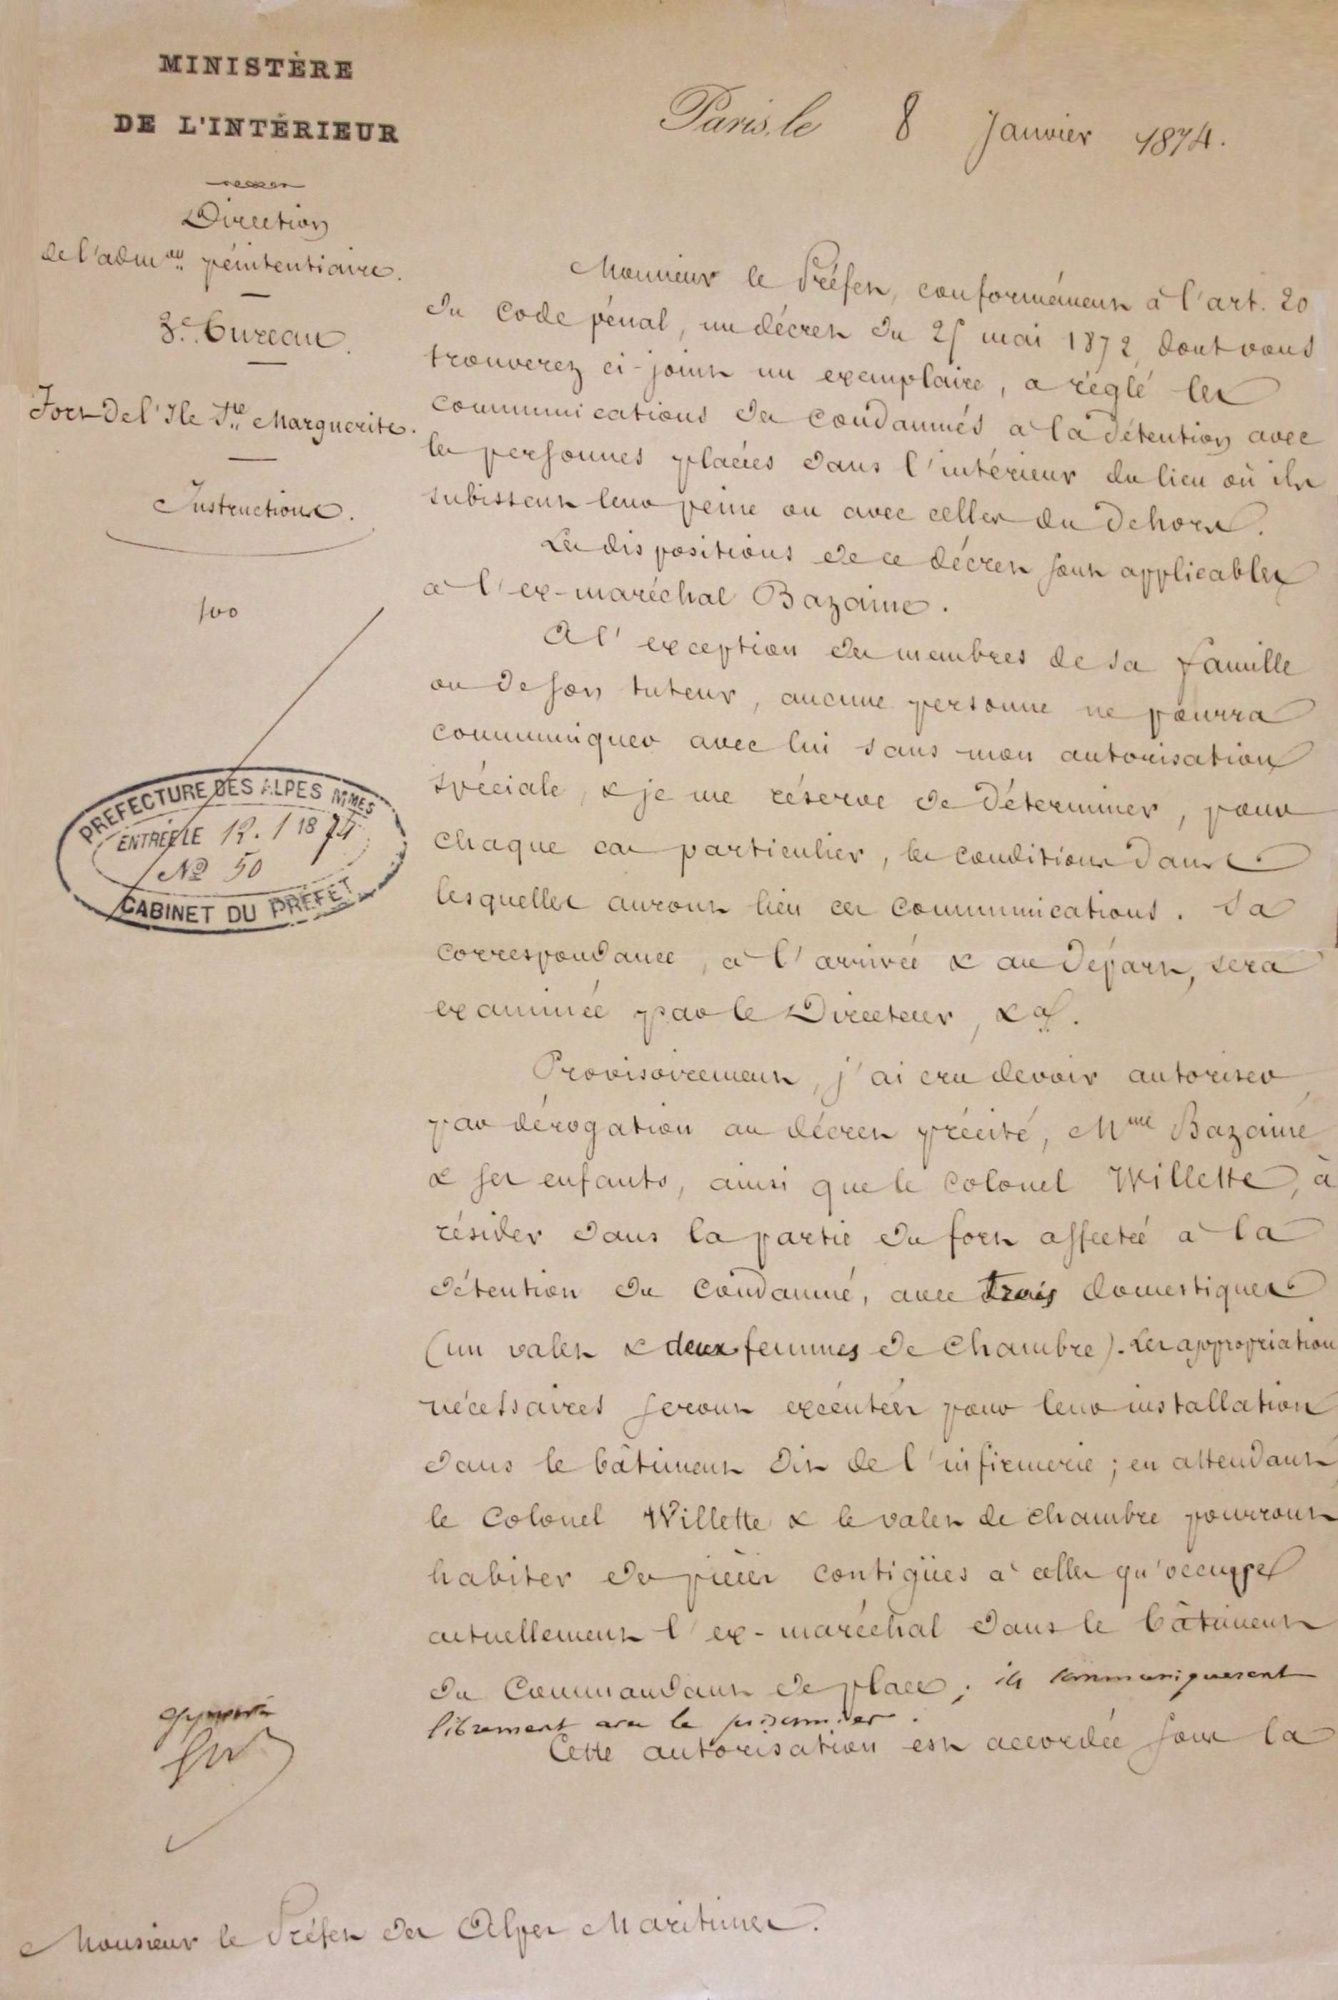 MINISTÈRE
DE L'INTÉRIEUR
Paris, le 8 Janvier 1874.
Direction
de l'adm.on pénitentiaire.
3e Bureau.
Fort de l'Ile Ste Marguerite.
Instructions.
500
PREFECTURE DES ALPES MMES
ENTRÉE LE 12.1 1874
No 50
CABINET DU PREFET
Monsieur le Préfet, conformément à l'art. 20
du Code pénal, un décret du 25 mai 1872, dont vous
trouverez ci-joint un exemplaire, a réglé les
communications des condamnés à la détention avec
les personnes placées dans l'intérieur du lieu où ils
subissent leur peine ou avec celles du dehors.
Les dispositions de ce décret sont applicables
à l'ex-maréchal Bazaine.
A l'exception des membres de sa famille
ou de son tuteur, aucune personne ne pourra
communiquer avec lui sans mon autorisation
spéciale, & je me réserve de déterminer, pour
chaque cas particulier, les conditions dans
lesquelles auront lieu ces communications. Sa
correspondance, à l'arrivée & au départ, sera
examinée par le Directeur, &a.
Provisoirement, j'ai cru devoir autoriser
par dérogation au décret précité, Mme Bazaine
& ses enfants, ainsi que le Colonel Willette, à
résider dans la partie du fort affectée à la
détention du condamné, avec trois domestiques
(un valet & deux femmes de chambre). Les appropriation
nécessaires seront exécutées pour leur installation
dans le bâtiment dit de l'infirmerie; en attendant
le Colonel Willette & le valet de chambre pourront
habiter des pièces contigües à celles qu'occupe
actuellement l'ex-maréchal dans le bâtiment
du Commandant de place; ils communiqueront
librement avec le prisonnier.
Cette autorisation est accordée sous la
Monsieur le Préfet des Alpes Maritimes.